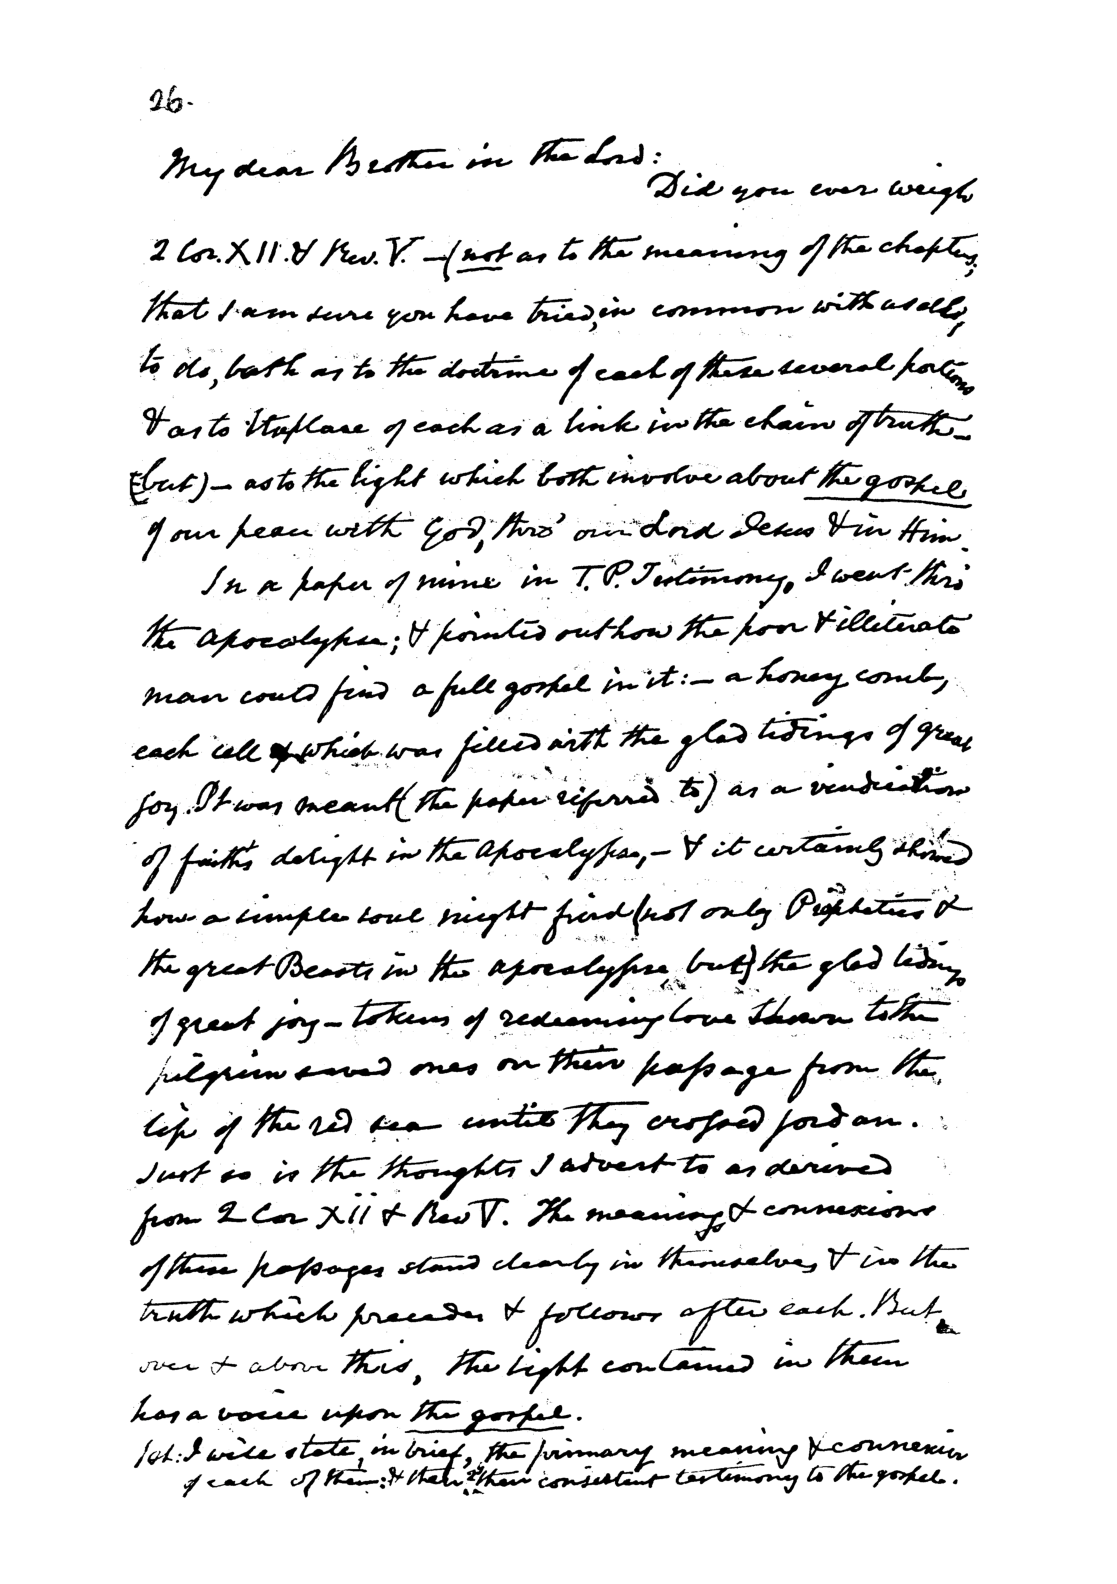 26.
My dear Brother in the Lord:
Did you ever weigh
2 Cor. XII. & Rev. V. — (not as to the meaning of the chapters;
that I am sure you have tried, in common with us all,
to do, both as to the doctrine of each of these several portions
& as to the place of each as a link in the chain of truth —
(but) — as to the light which both involve about the gospel
of our peace with God, thro' our Lord Jesus & in Him.
In a paper of mine in T. P. Testimony, I went thro'
the Apocalypse; & pointed out how the poor & illiterate
man could find a full gospel in it: — a honey comb,
each cell of which was filled with the glad tidings of great
joy. It was meant (the paper referred to) as a vindication
of faith's delight in the Apocalypse, — & it certainly showed
how a simple soul might find (not only Prophetics &
the great Beasts in the Apocalypse, but) the glad tidings
of great joy — tokens of redeeming love shown to the
pilgrim saved ones on their passage from the
lip of the red sea until they crossed Jordan.
Just so is the thoughts I advert to as derived
from 2 Cor XII & Rev V. The meanings & connexions
of these passages stand clearly in themselves & in the
truth which precedes & follows after each. But
over & above this, the light contained in them
has a voice upon the gospel.
1st: I will state, in brief, the primary meaning & connexion
of each of them: & then 2d their consistent testimony to the gospel.